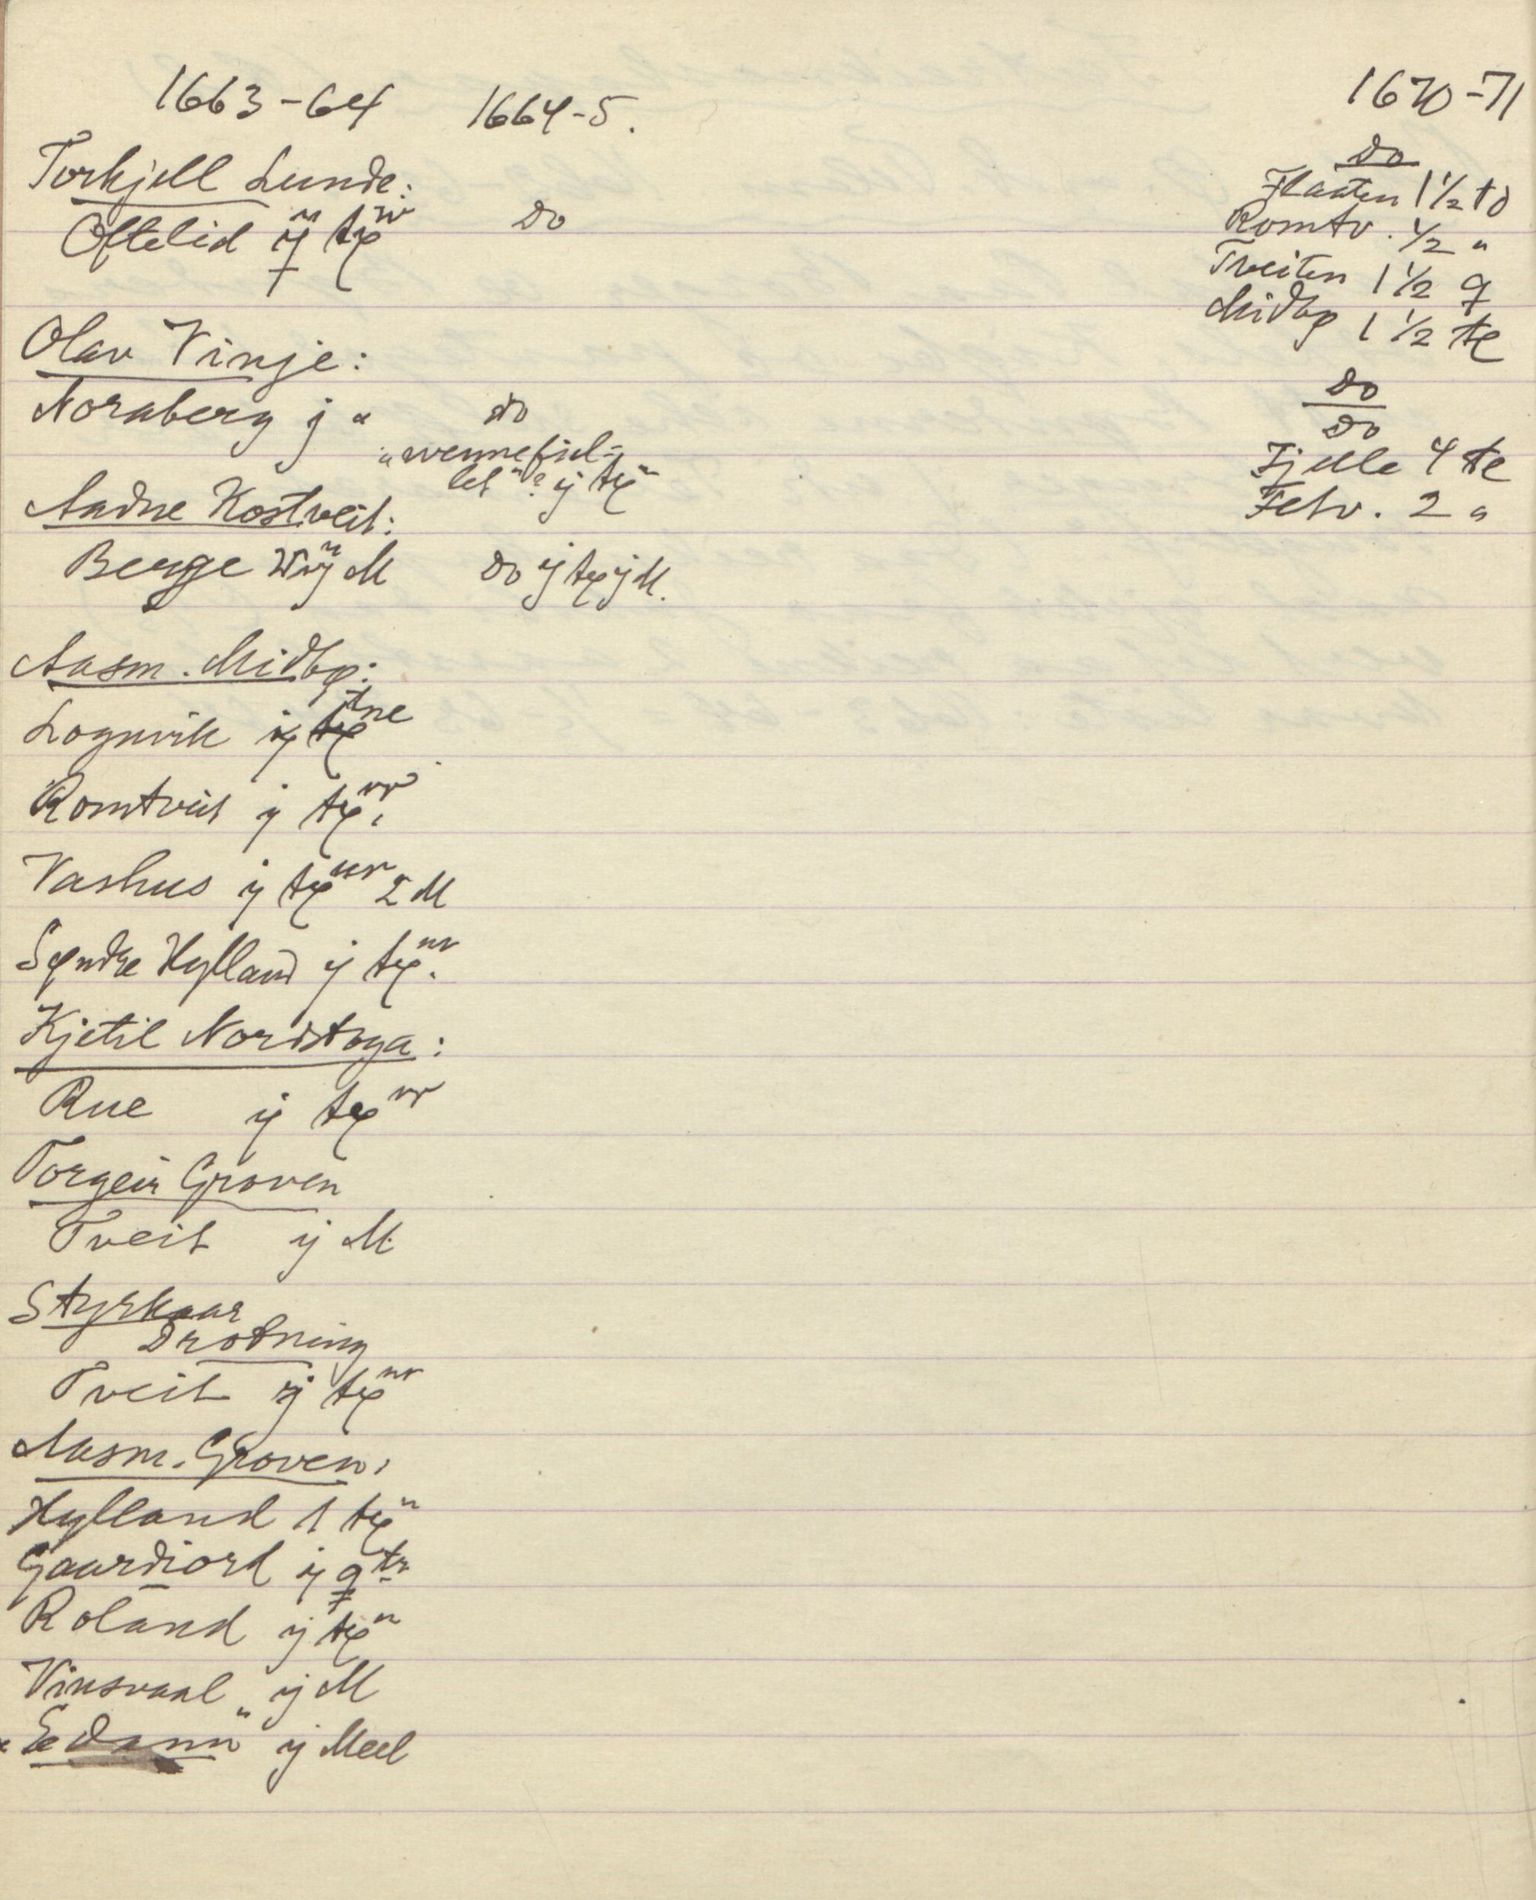 1663-64 1664-5. 1670-71
Torkjell Lunde: do
Oftelid ij tƶ do
Flaaten 1 1/2 td
Romtv. 1/2 "
Tveiten 1 1/2 q
Midbø 1 1/2 te
Olav Vinje: do
Noraberg j " do do
"wennefiel=
let"? ij tƶ
Fjelle 4 te
Fetv. 2 "
Aadne Kostveit:
Berge ij M do ij tƶ j M.
Aasm. Midbø:
Lognvik ij tne
Romtveit ij tƶ
Vashus ij tƶ 2 M
Syndre Hylland ij tƶ
Kjetil Nordstoga:
Rue ij tƶ
Torgeir Groven
Tveit ij M
Styrkaar
Drotning
Tveit ij tƶ
Aasm. Groven:
Hylland 1 tƶ
Gaardiord ij q
Roland ij tƶ
Vinsvaal ij M
"Edann" ij Meel